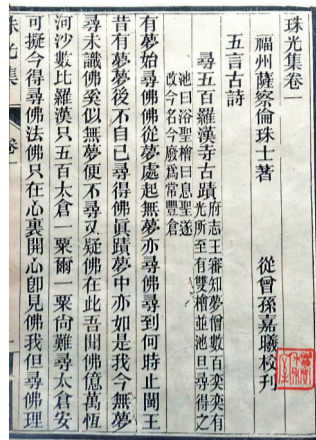 珠光集卷一
福州薩察倫珠士著　從曾孫嘉曦校刊
五言古詩
尋五百羅漢寺古蹟府志王審知夢僧數百奕奕有
光所至有雙檜並池旦尋得之
池曰浴聖檜曰息聖遂
改今名今廢為常豐倉
有夢始尋佛佛從夢處起無夢亦尋佛尋到何時止閩王
昔有夢夢後不自己尋得佛真蹟夢中亦如是我今無夢
尋未識佛奚似無夢便不尋又疑佛在此吾聞佛億萬恆
河沙數比羅漢只五百太倉一粟爾一粟尚難尋太倉安
可擬今得尋佛法佛只在心裏開心卽見佛我但尋佛理
珠光集　卷一